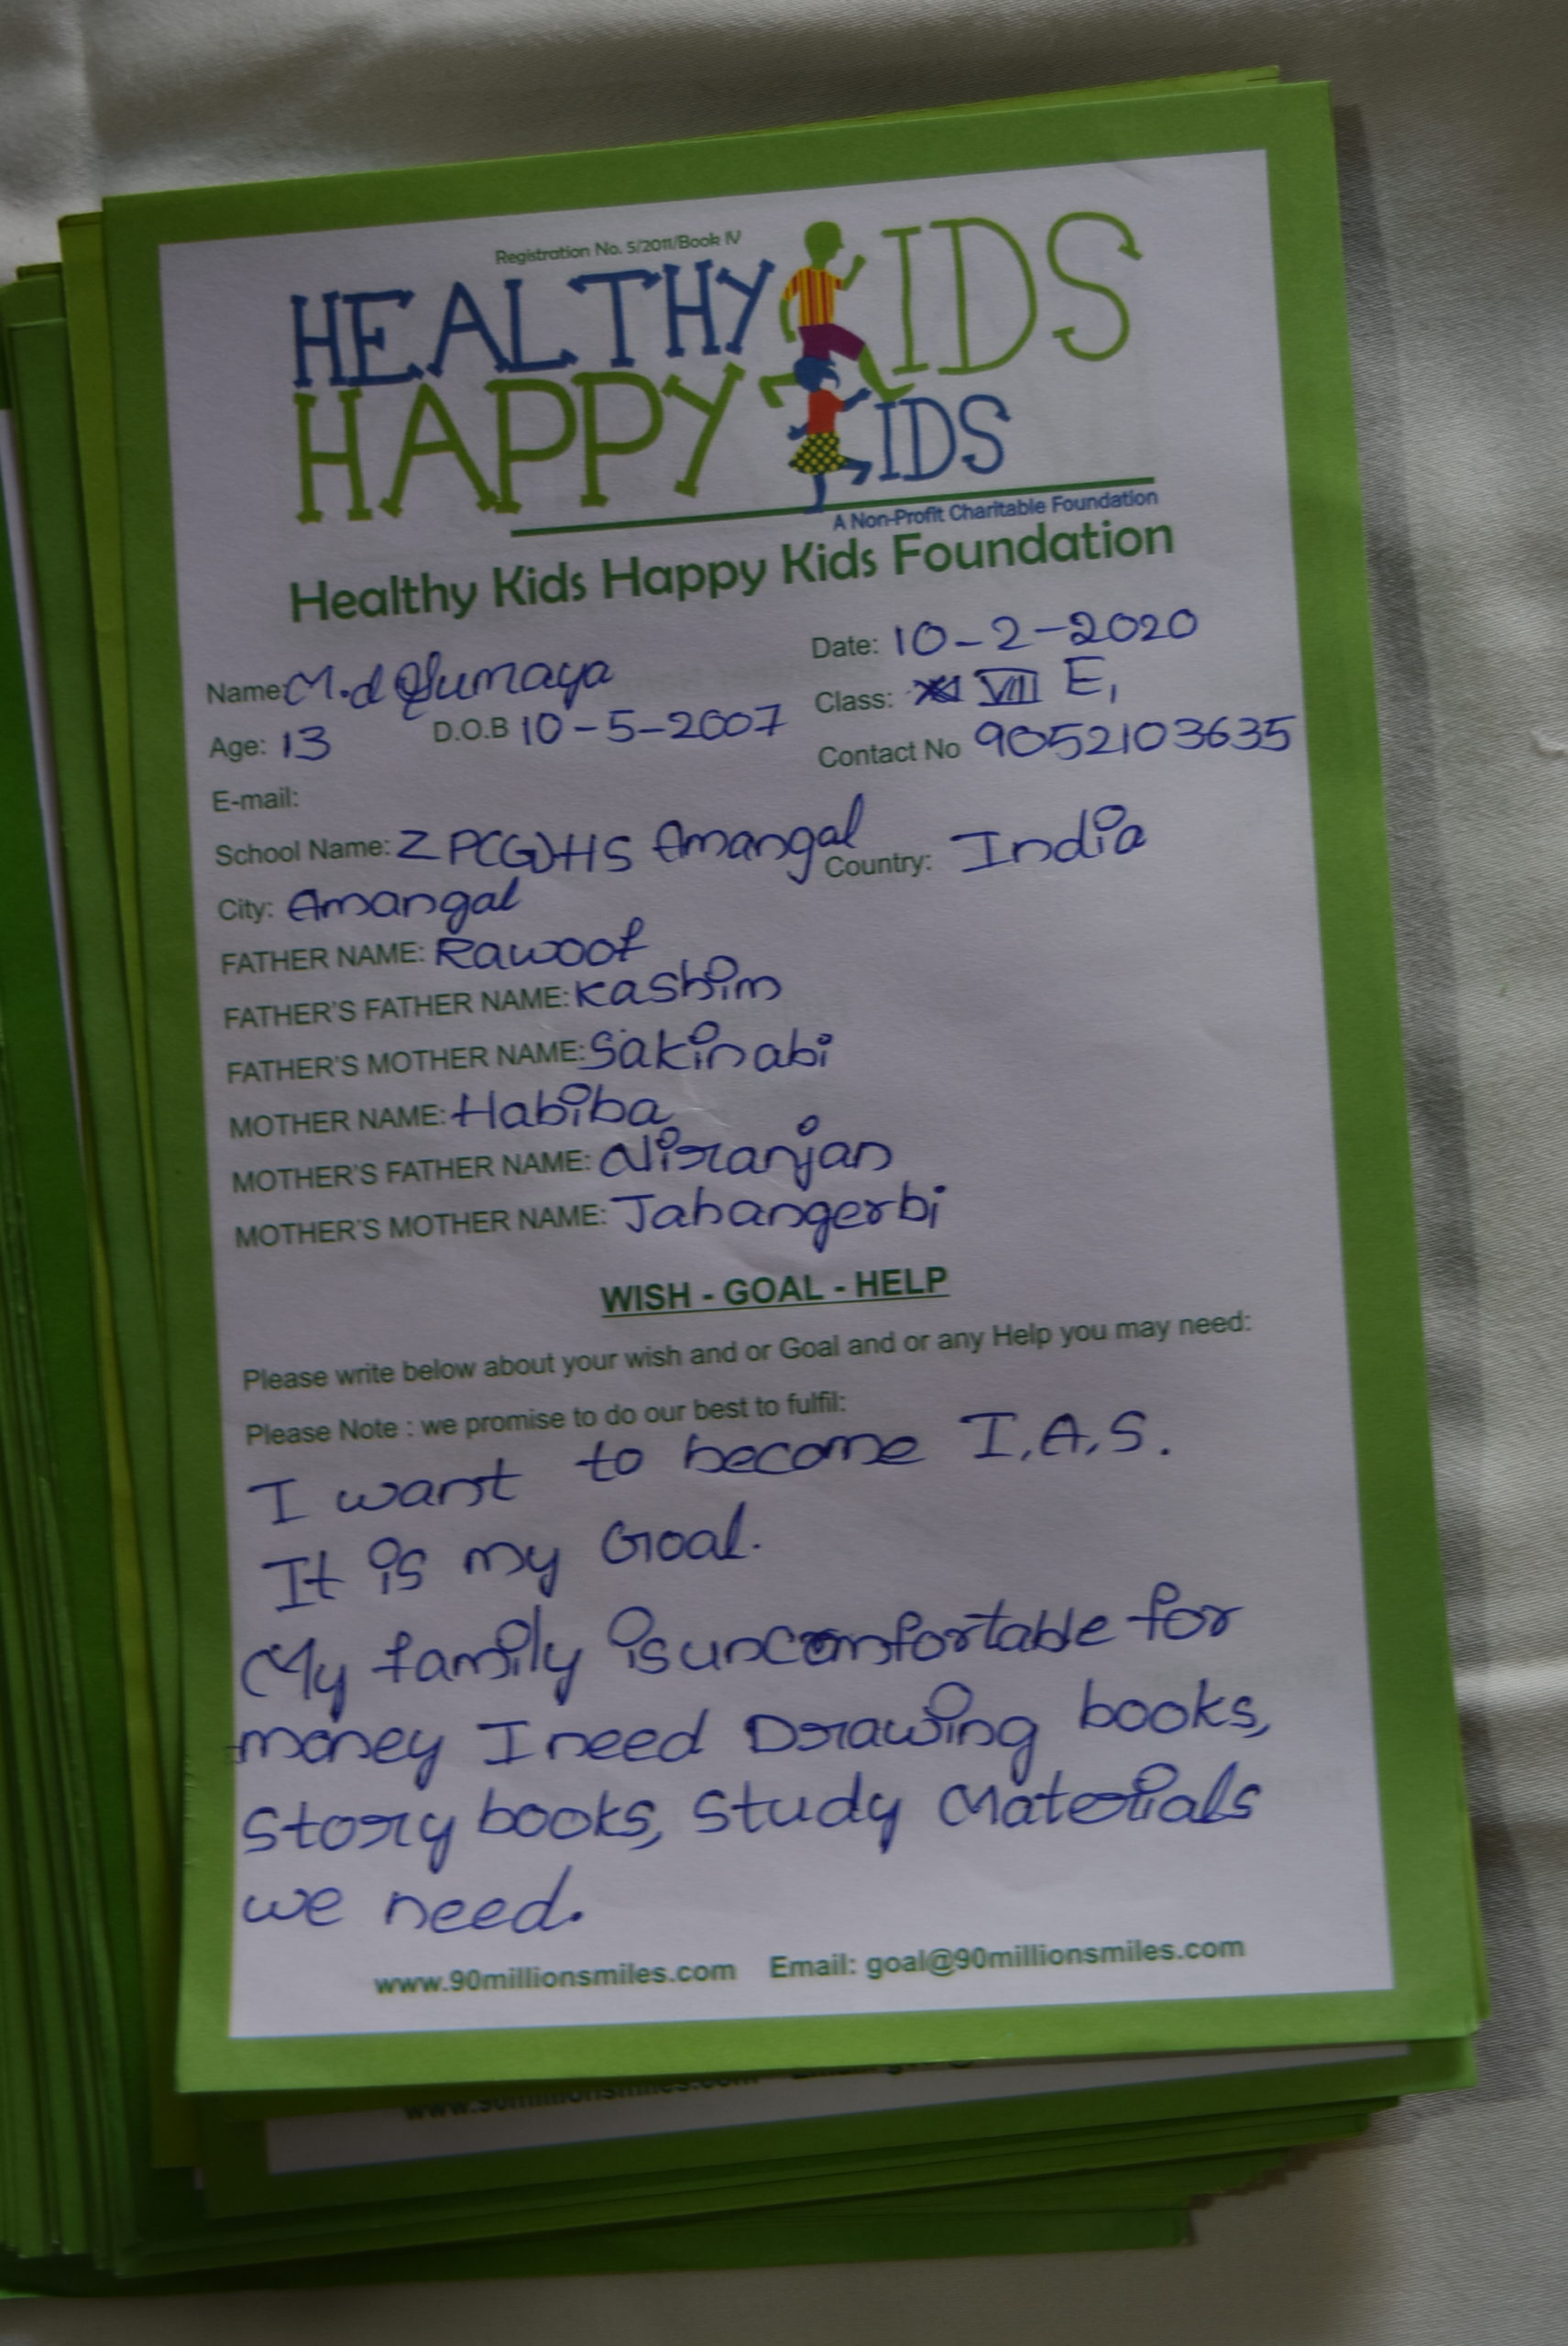 Registration No. 5/2011/Book IV
HEALTHY KIDS
HAPPY KIDS
A Non-Profit Charitable Foundation
Healthy Kids Happy Kids Foundation
Name: M.d Sumaya Date: 10-2-2020
Age: 13 D.O.B 10-5-2007 Class: VIII E,
E-mail: Contact No 9052103635
School Name: ZP(G)HS Amangal Country: India
City: Amangal
FATHER NAME: Rawoof
FATHER'S FATHER NAME: Kashim
FATHER'S MOTHER NAME: Sakinabi
MOTHER NAME: Habiba
MOTHER'S FATHER NAME: Niranjan
MOTHER'S MOTHER NAME: Jahangerbi
WISH - GOAL - HELP
Please write below about your wish and or Goal and or any Help you may need:
Please Note : we promise to do our best to fulfil:
I want to become I.A.S.
It is my Goal.
My family is uncomfortable for
money I need Drawing books,
Story books, Study Materials
we need.
www.90millionsmiles.com Email: goal@90millionsmiles.com
www.90millionsmiles.com